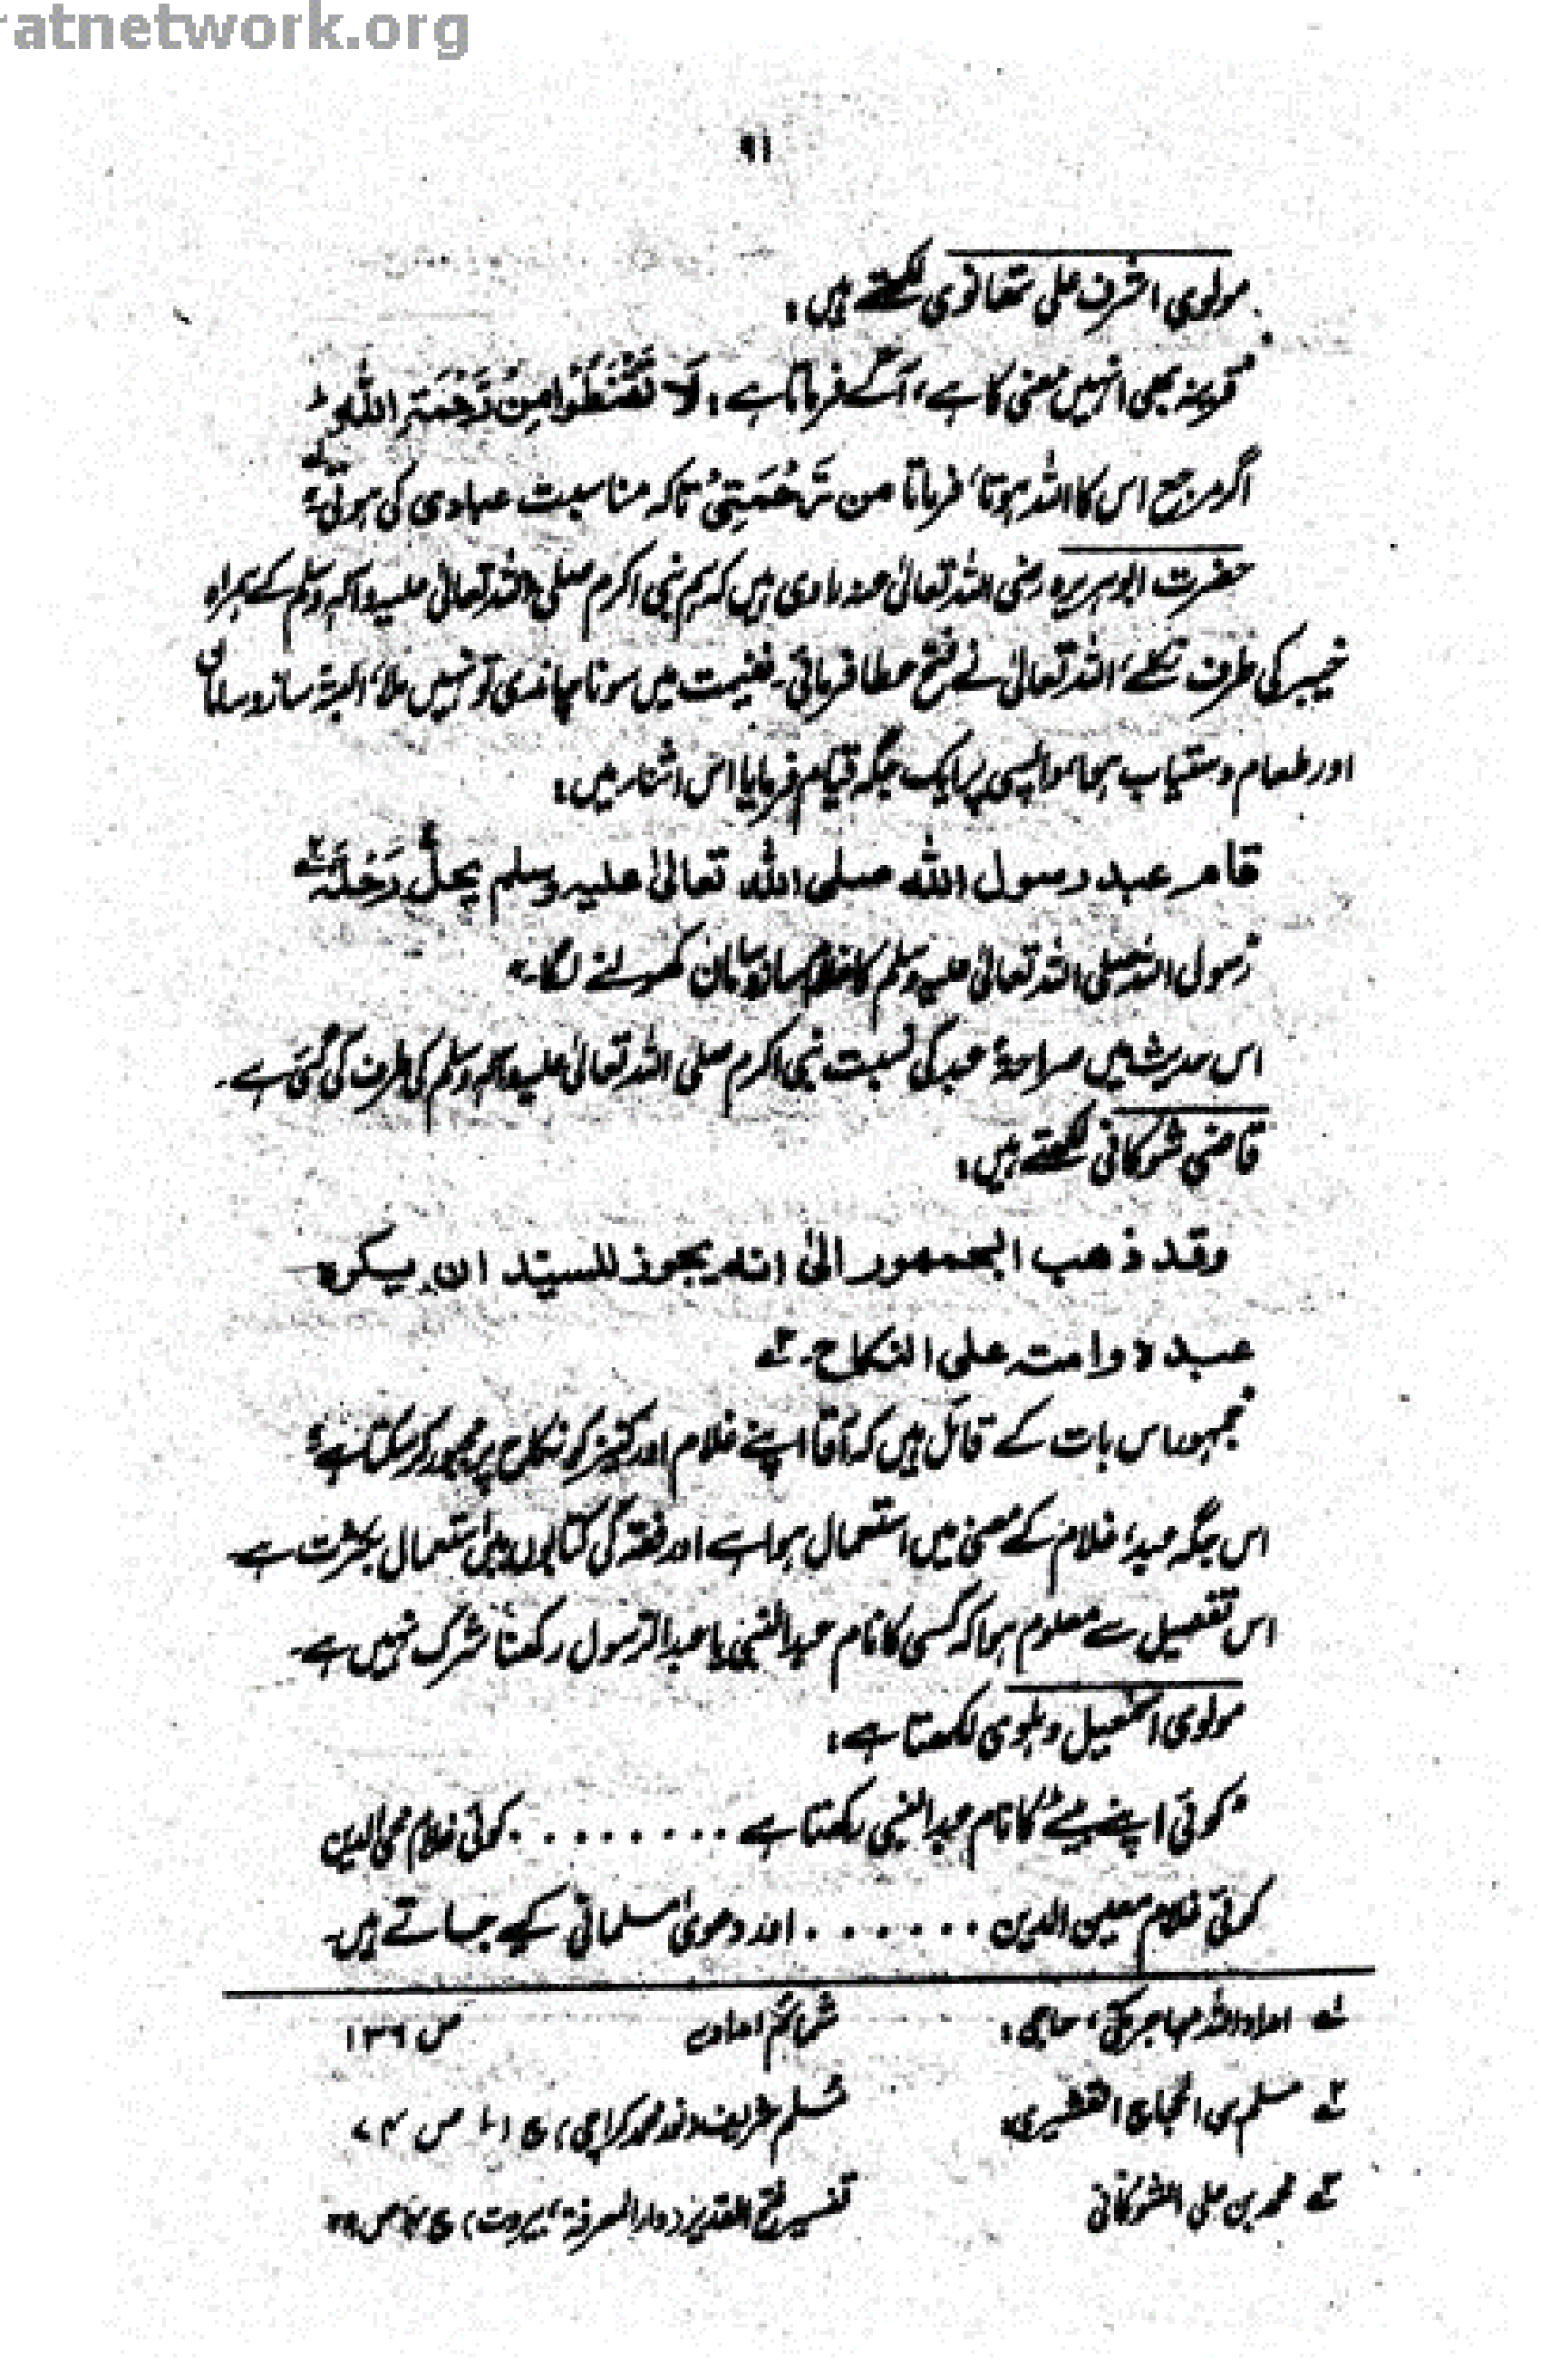 ratnetwork.org
۹۱
مولوی اشرف علی تھانوی لکھتے ہیں:
"قرینہ بھی انہیں معنی کا ہے، آگے فرماتا ہے: لَا تَقْنَطُوْا مِنْ رَّحْمَةِ اللّٰهِ ط
اگر مرجع اس کا اللہ ہوتا، فرماتا من رَّحْمَتِیْ تاکہ مناسبت عبادی کی ہوتی" لے
حضرت ابوہریرہ رضی اللہ تعالیٰ عنہ راوی ہیں کہ ہم نبی اکرم صلی اللہ تعالیٰ علیہ وآلہ وسلم کے ہمراہ
خیبر کی طرف نکلے، اللہ تعالیٰ نے فتح عطا فرمائی۔ غنیمت میں سونا چاندی تو نہیں ملا، البتہ سازوسامان
اور طعام دستیاب ہوا، واپسی پر ایک جگہ قیام فرمایا اس اثناء میں:
قام عبد رسول اللّٰه صلی اللّٰه تعالیٰ علیہ وسلم یحلّ رَحْلَہٗ ۲ے
"رسول اللہ صلی اللہ تعالیٰ علیہ وسلم کا غلام سازوسامان کھولنے لگا۔"
اس حدیث میں صراحۃً عبد کی نسبت نبی اکرم صلی اللہ تعالیٰ علیہ وآلہ وسلم کی طرف کی گئی ہے۔
قاضی شوکانی لکھتے ہیں:
وقد ذهب الجمهور الیٰ انہ یجوز للسیّد ان یکرہ
عبدہ وامتہ علی النکاح۔ ۳ے
"جمہور اس بات کے قائل ہیں کہ آقا اپنے غلام اور کنیز کو نکاح پر مجبور کر سکتا ہے"
اس جگہ عبد، غلام کے معنی میں استعمال ہوا ہے اور فقہ کی کتابوں میں استعمال بکثرت ہے۔
اس تفصیل سے معلوم ہوا کہ کسی کا نام عبدالنبی یا عبدالرسول رکھنا شرک نہیں ہے۔
مولوی اسمٰعیل دہلوی لکھتا ہے:
"کوئی اپنے بیٹے کا نام عبدالنبی رکھتا ہے ......... کوئی غلام محی الدین
کوئی غلام معین الدین ....... اور دعویٰ مسلمانی کیے جاتے ہیں۔
۱ے امداداللہ مہاجر مکی، حاجی: شمائم امدادیہ ص ۱۳۶
۲ے مسلم بن الحجاج القشیری، مسلم شریف (نور محمد کراچی) ج ۱، ص ۷۴
۳ے محمد بن علی الشوکانی تفسیر فتح القدیر (دارالمعرفۃ، بیروت) ج ۴، ص